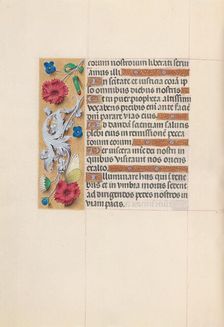 corum nostrorum liberati serui
amus illi
In scitate et iusticia coram ip
so omnibus diebus nostris
Et tu puer propheta altissimi
vocaberis preibis enim ante faciem
parare vias eius
Ad dandam scientiam salutis
plebi eius in remissionem pecca
torum eorum
Per viscera mie dei nostri in
quibus visitauit nos oriens
ex alto
Illuminare his qui in tene
bris et in vmbra mortis sedent
ad dirigendos pedes nostros in
viam pacis